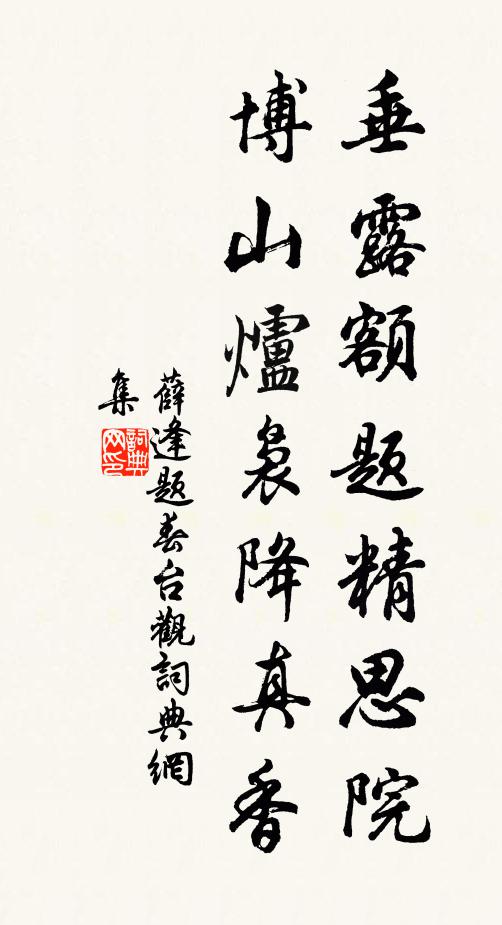 垂露額题精思院
博山爐裊降真香
薛逢题春台觀詞典網
集
詞典
网印